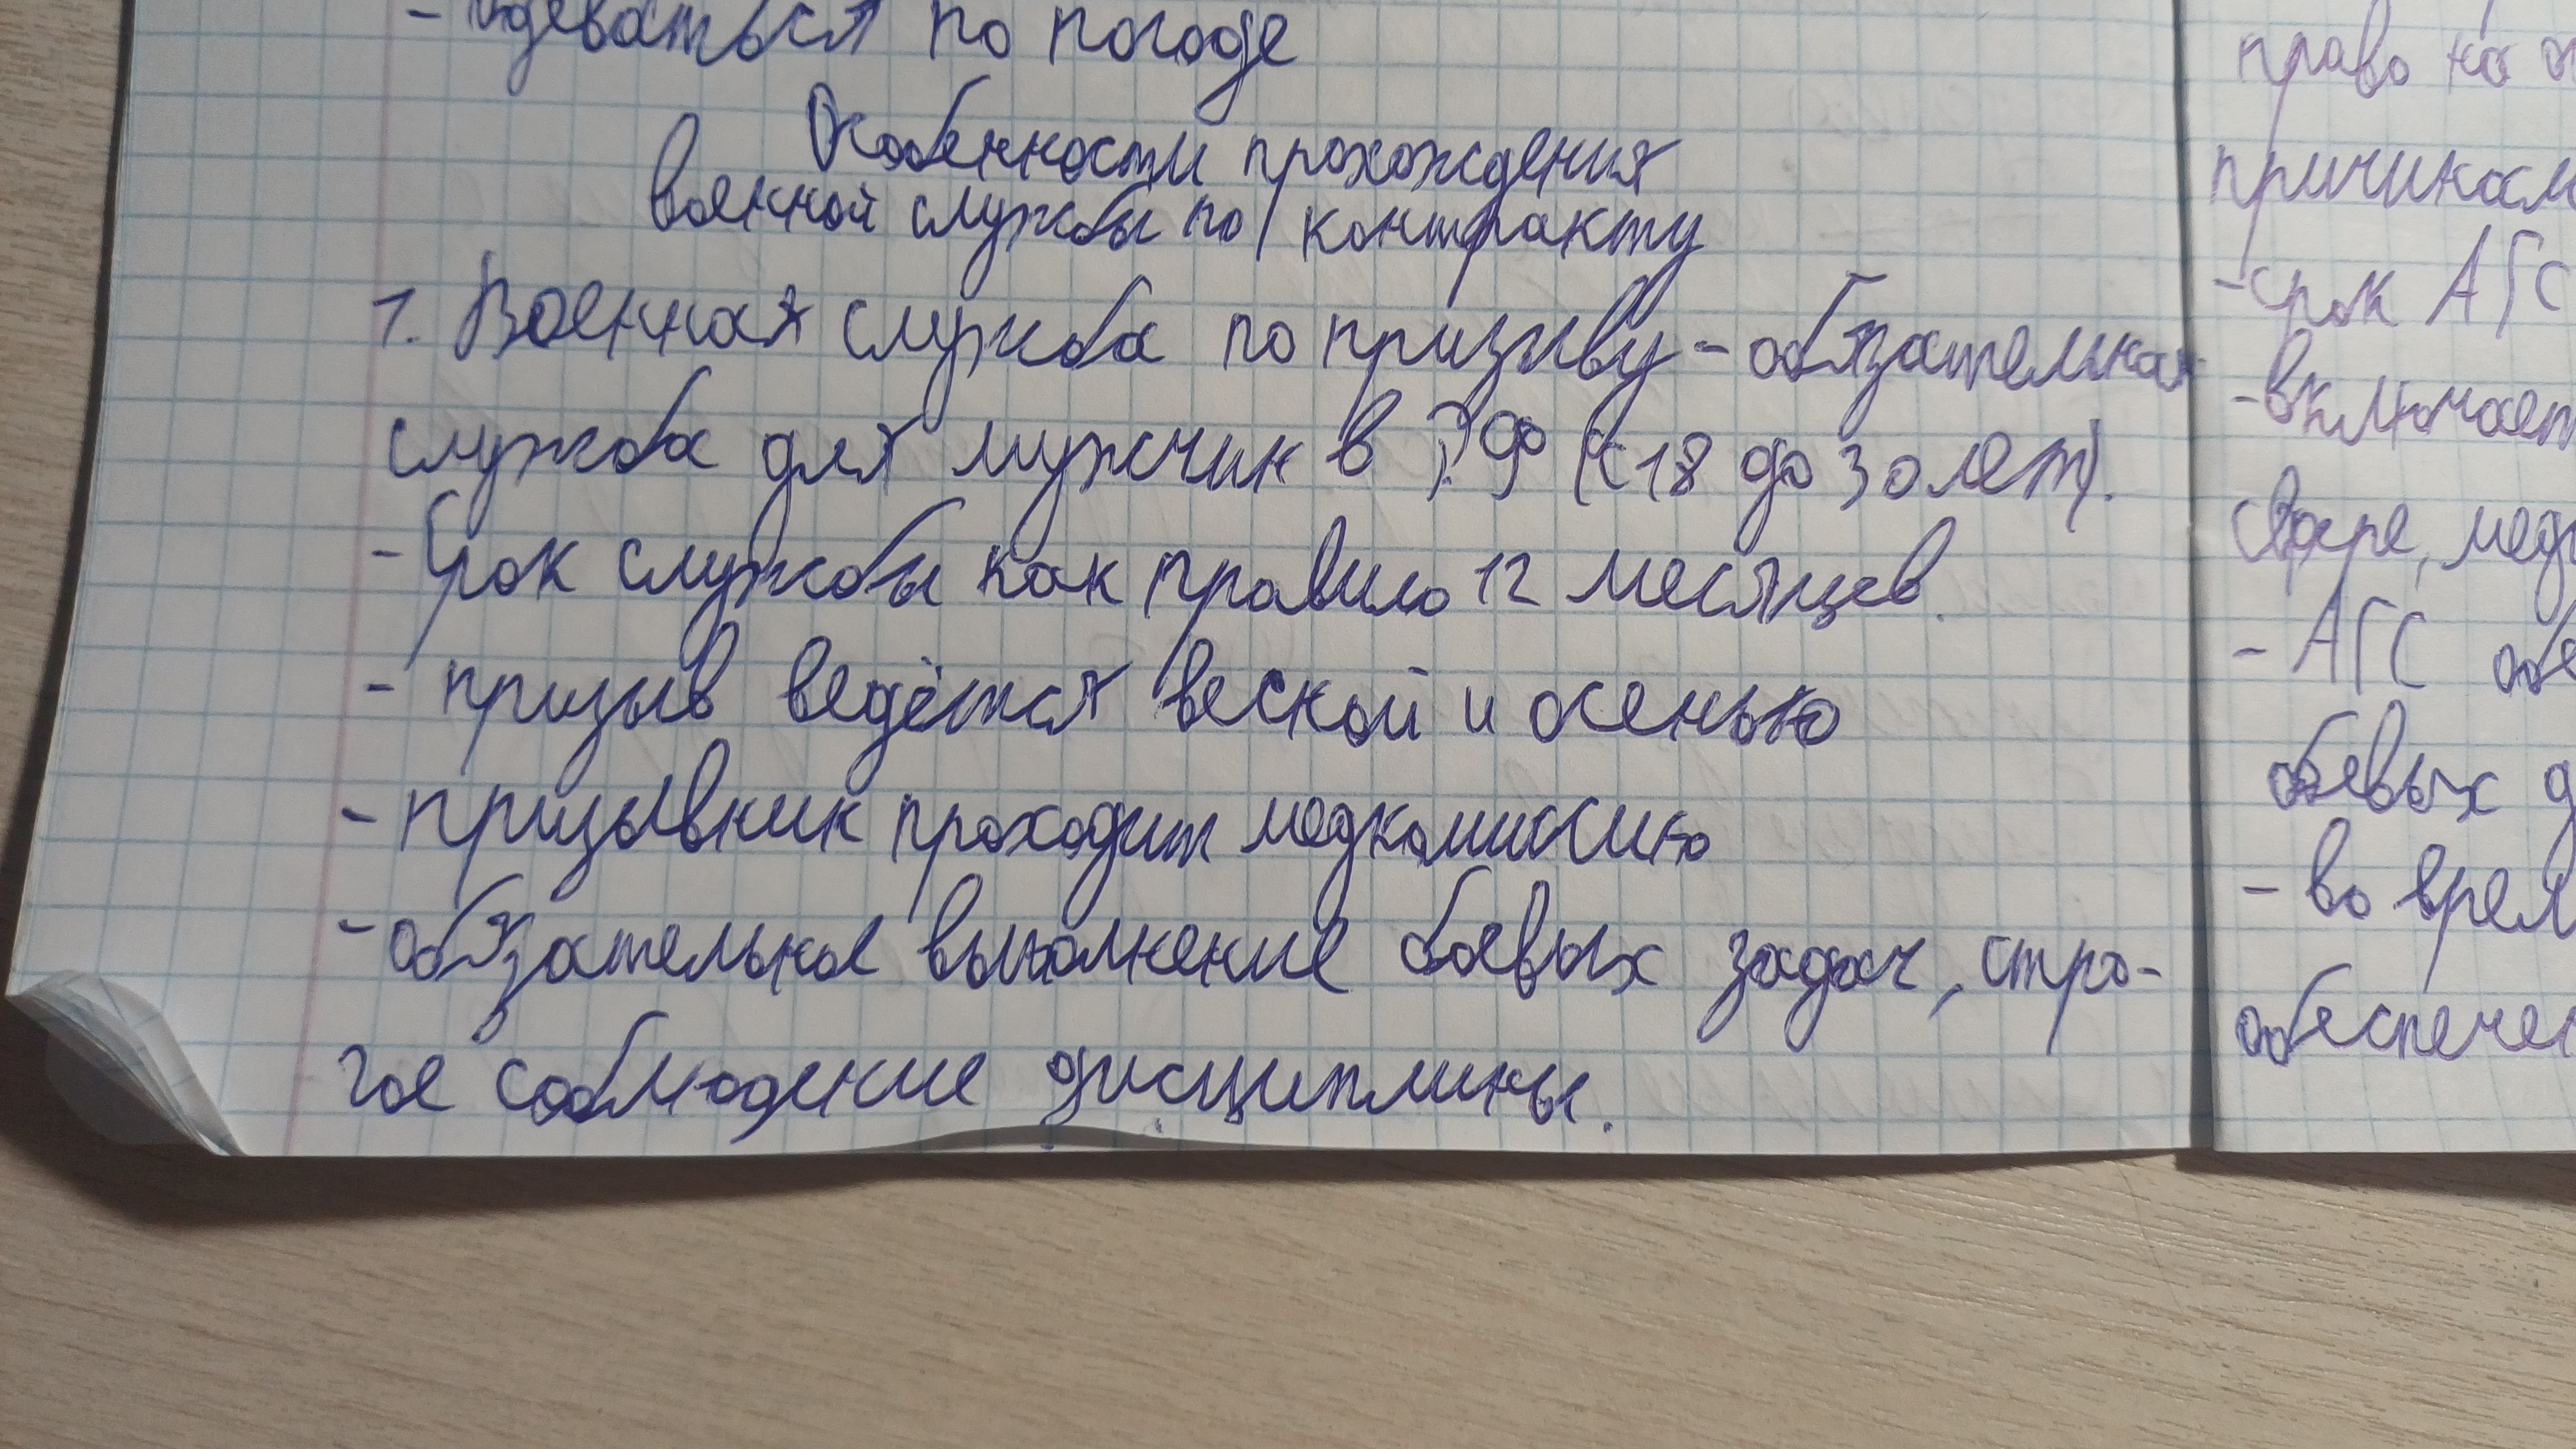 - одеваться по погоде
Особенности прохождения
военной службы по контракту
1. Военная служба по призыву - обязательная
служба для мужчин в РФ (с 18 до 30 лет).
- Срок службы как правило 12 месяцев.
- призыв ведётся весной и осенью
- призывник проходит медкомиссию
- обязательное выполнение боевых задач, стро-
гое соблюдение дисциплины.
право на
причинам
- срок АГС
- включает
сфере,
- АГС
боевых
- во